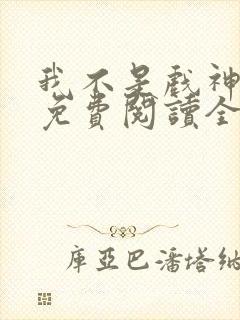 我不是戲神
免費閱讀全
庫亞巴潘塔納